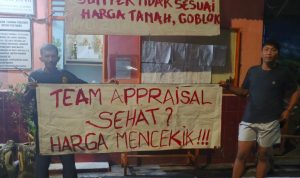 SUMTER TIDAK SESUAI
HARGA TANAH, GOBLOK
TEAM APPRAISAL
SEHAT?
HARGA MENCEKIK!!!